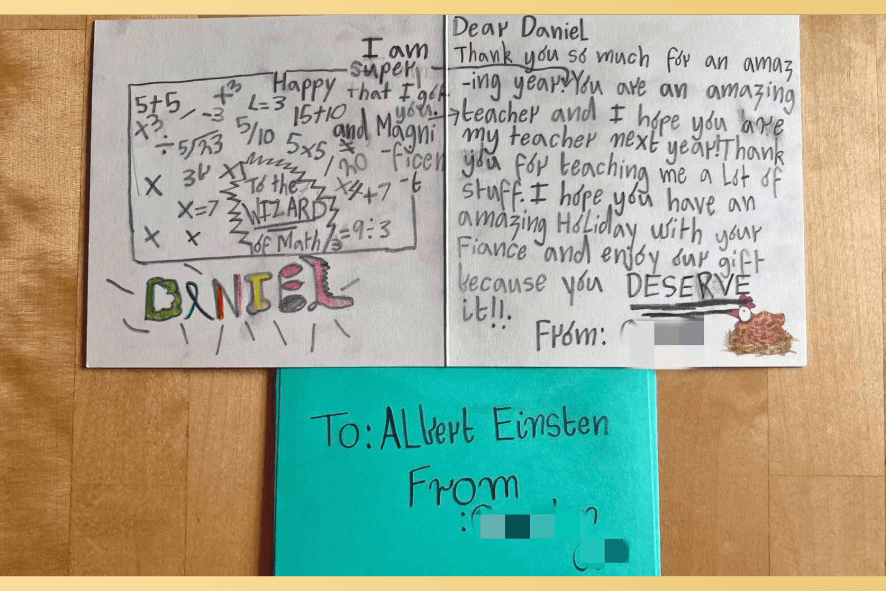 I am
super
Happy
that I got
you
and Magni
-ficen
-t
5+5
-3
+3
L=3
15+10
x3
÷
5/10
5x5
x
x1
x4+7
x=7
To the
WIZARD
of Math
=9÷3
x
x
DANIEL
Dear Daniel
Thank you so much for an amaz
-ing year! You are an amazing
teacher and I hope you are
my teacher next year! Thank
you for teaching me a lot of
stuff. I hope you have an
amazing Holiday with your
Fiance and enjoy our gift
because you DESERVE
it!!.
From:
To: ALbert Einsten
From
: